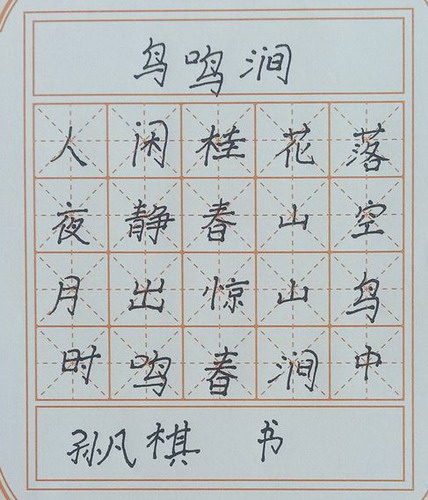 鸟鸣涧
人闲桂花落
夜静春山空
月出惊山鸟
时鸣春涧中
孙凡棋 书